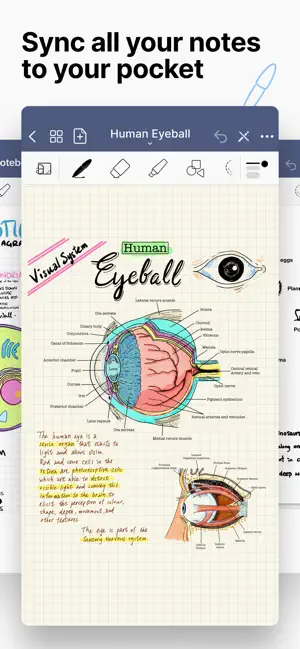 Sync all your notes
to your pocket
Human Eyeball
Visual System
Human
Eyeball
Lateral rectus muscle
Ora serrata
Sclera
Ciliary body
Choroid
Conjunctiva
Retina
Canal of Schlemm
Vitreous
Macula
Anterior chamber
Optic nerve papilla
Pupil
Lens
Central retinal
Artery and vein
Cornea
Optic nerve
Iris
Pigment epithelium
Posterior chamber
Retinal arteries and venules
Lens capsule
Ora serrata
Medial rectus muscle
The human eye is a
sense organ that reacts to
light and allows vision.
Rod and cone cells in the
retina are photoreceptive cells
which are able to detect
visible light and convey this
information to the brain, to
elicit the perception of colour,
shape, depth, movement, and
other features.
The eye is part of the
sensory nervous system.
eggs